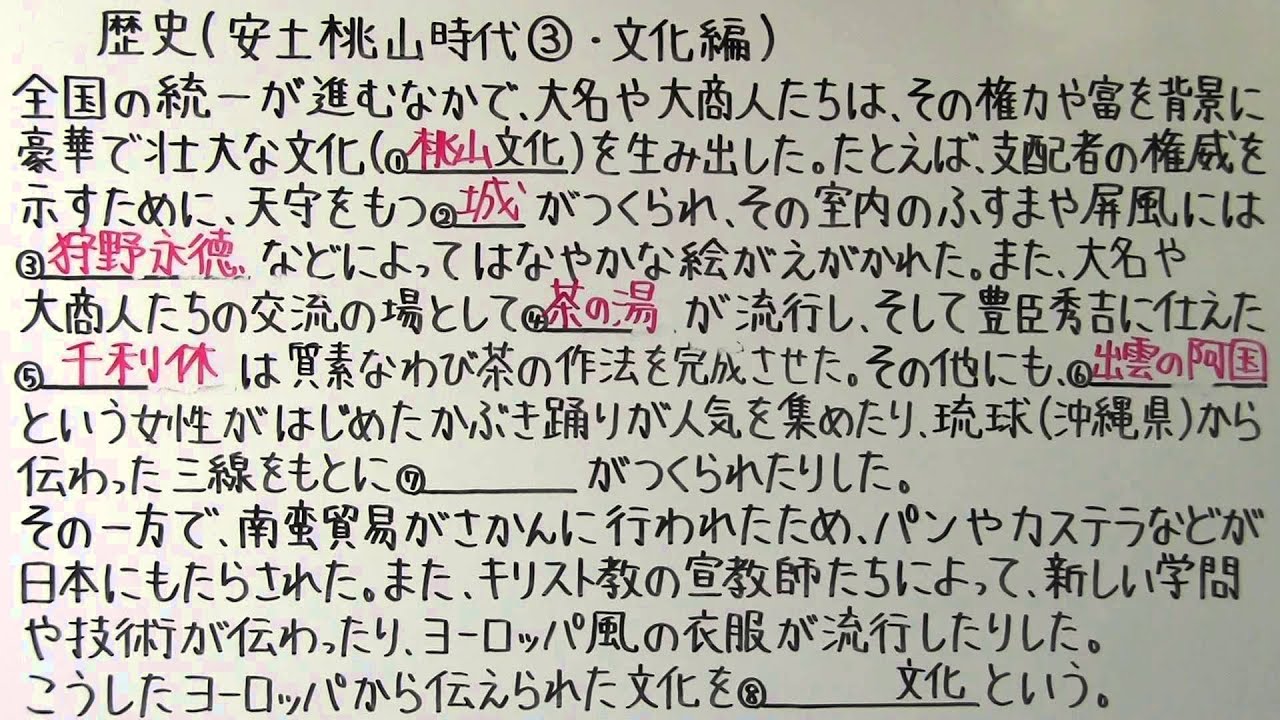 歴史(安土桃山時代③・文化編)
全国の統一が進むなかで、大名や大商人たちは、その権力や富を背景に
豪華で壮大な文化(①桃山文化)を生み出した。たとえば、支配者の権威を
示すために、天守をもつ②城がつくられ、その室内のふすまや屏風には
③狩野永徳などによってはなやかな絵がえがかれた。また、大名や
大商人たちの交流の場として④茶の湯が流行し、そして豊臣秀吉に仕えた
⑤千利休は質素なわび茶の作法を完成させた。その他にも、⑥出雲の阿国
という女性がはじめたかぶき踊りが人気を集めたり、琉球(沖縄県)から
伝わった三線をもとに⑦______がつくられたりした。
その一方で、南蛮貿易がさかんに行われたため、パンやカステラなどが
日本にもたらされた。また、キリスト教の宣教師たちによって、新しい学問
や技術が伝わったり、ヨーロッパ風の衣服が流行したりした。
こうしたヨーロッパから伝えられた文化を⑧______文化という。